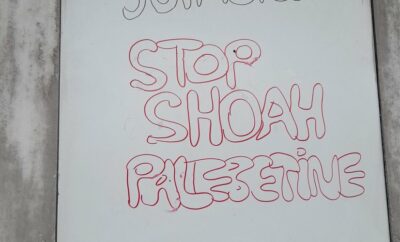 STOP
SHOAH
PALESETINE